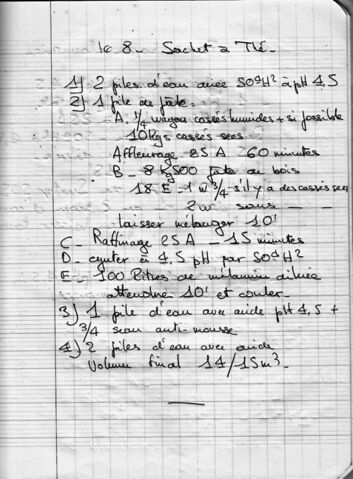 16 8 - Sachet à Thé.
1) 2 piles d'eau avec SO4H2 à pH 4,5
2) 1 pile de pâte.
A. 1/4 wagon cassés humides + si possible
10 Kgs cassés secs
Affleurage 25 A - 60 minutes
B - 8 Kg500 pâte de bois
18 E - 1 w 3/4 s'il y a des cassés secs
2 w sans —
laisser mélanger 10'
C - Raffinage 25 A - 15 minutes
D - ajuter à 4,5 pH par SO4H2
E - 100 litres de mélamine diluée
attendre 10' et couler -
3) 1 pile d'eau avec acide pH 4,5 +
3/4 seau anti-mousse
4) 2 piles d'eau avec acide
Volume final 14/15 m3 -